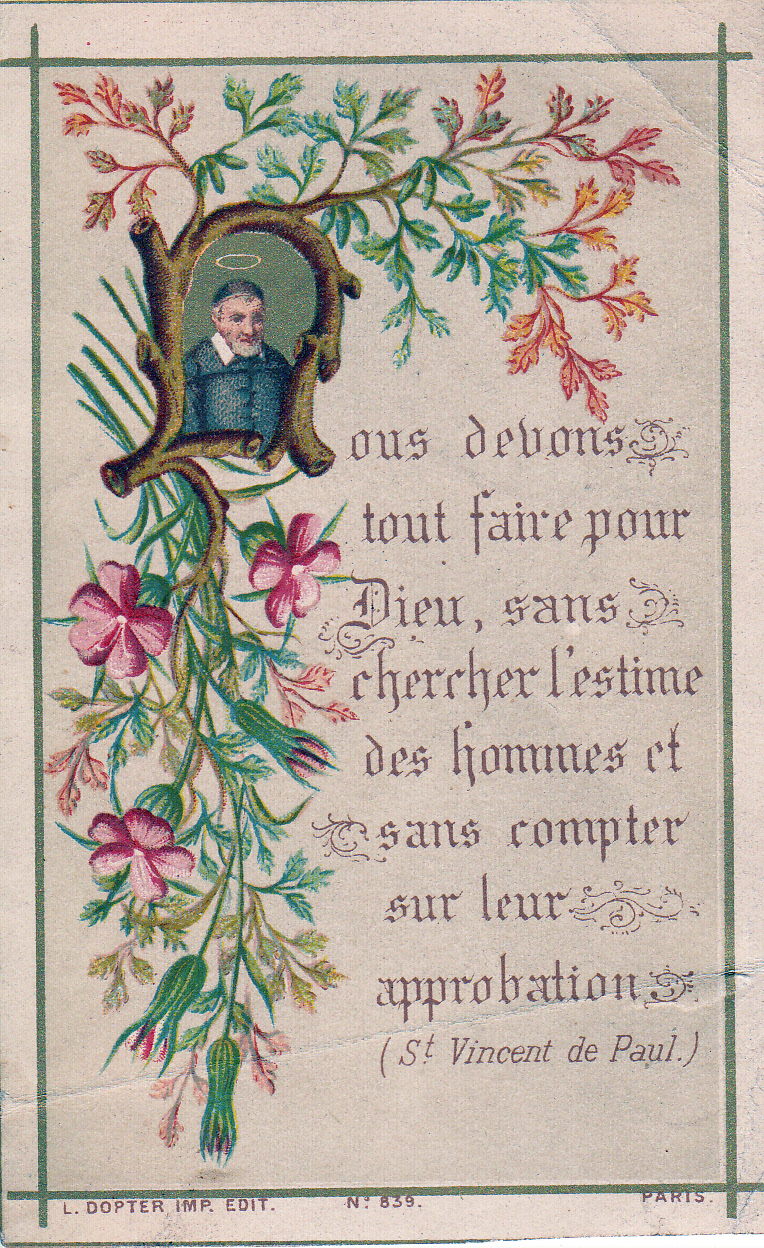 Nous devons
tout faire pour
Dieu, sans
chercher l'estime
des hommes et
sans compter
sur leur
approbation
(St Vincent de Paul.)
L. DOPTER IMP. EDIT. No 839. PARIS.